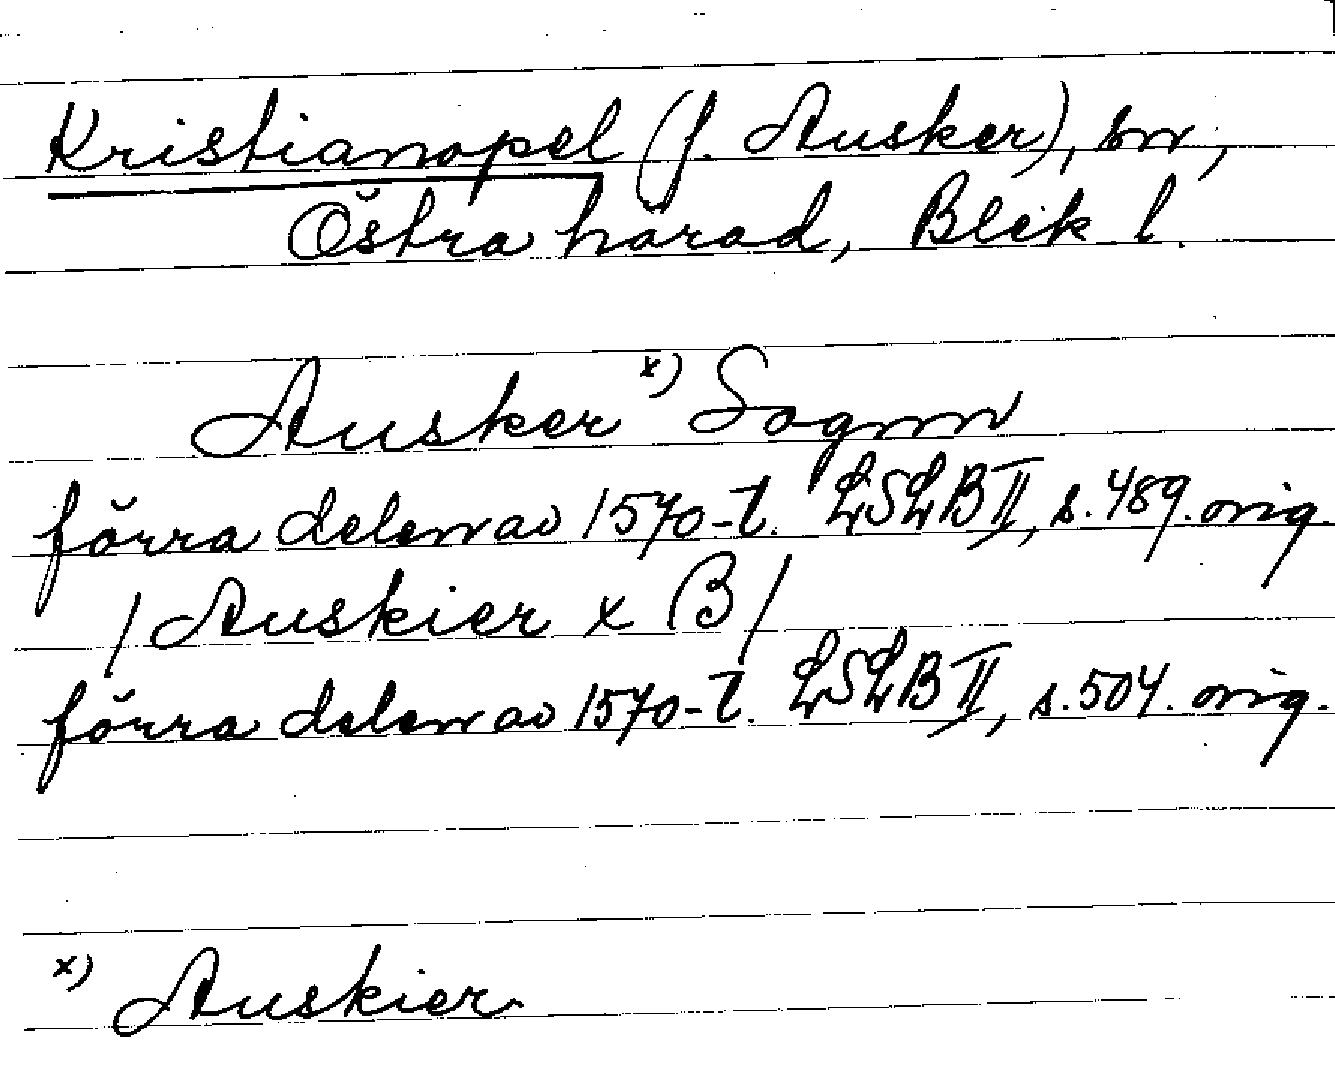 Kristianopel (f. Ausker), sn,
Östra härad, Blek l.
Ausker x) Sognn
förra delen av 1570-t. LSLB II, s. 489. orig.
/Auskier x B/
förra delen av 1570-t. LSLB II, s. 504. orig.
x) Auskier